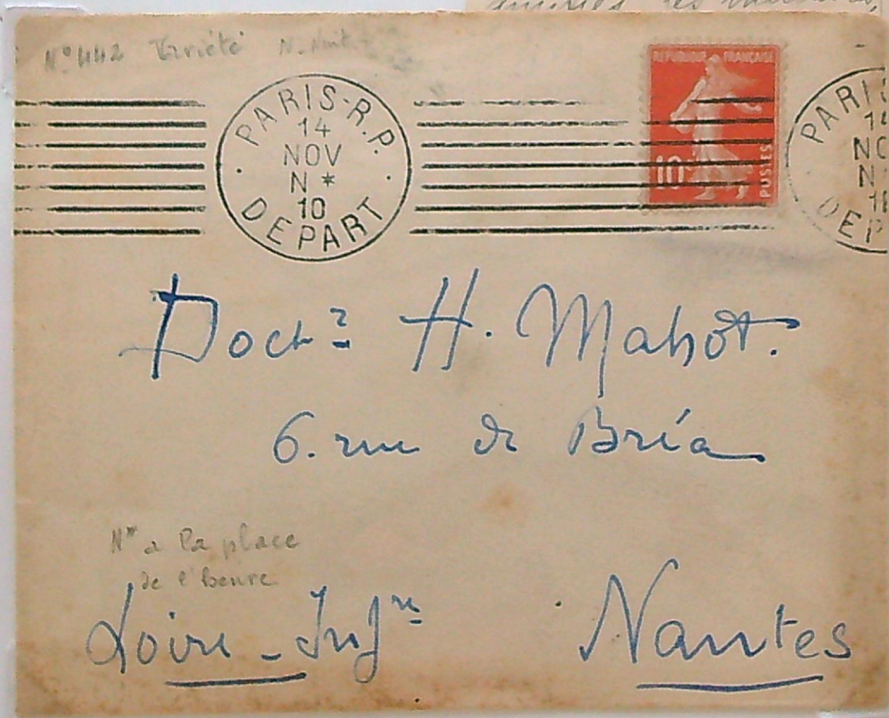 N° 442 Variété N. Nuit
PARIS-R.P.
14
NOV
N *
10
DEPART
REPUBLIQUE FRANÇAISE
10
POSTES
PARIS
14
NO
N
1
DEP
Doctr H. Mahot.
6. rue de Bréa
N* a la place
de l'heure
Loire-Infre Nantes